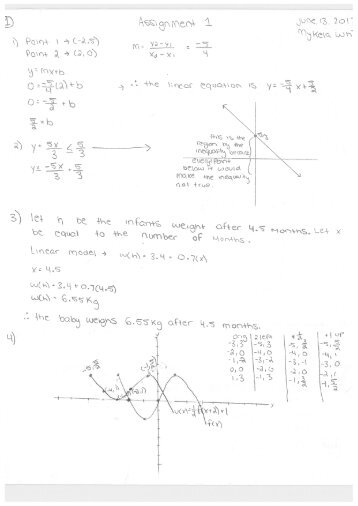 D Assignment 1 June 13, 201
Mykela
1) Point 1 → (-2,5)
Point 2 → (2,0)
m = y2-y1 / x2-x1 = -5/4
y=mx+b
0=-5/4(2)+b
0=-5/2+b
5/2=b
→ ∴ the linear equation is y=-5/4x+5/2
2) y+5x/3 ≤ 5/3
y≤ -5x/3 + 5/3
this is the
region by the
inequality because
every point
below it would
make the inequality
not true.
3) let h be the infants weight after 4.5 months. Let x
be equal to the number of months.
Linear model → w(h)=3.4+0.7(x)
x=4.5
w(h)=3.4+0.7(4.5)
w(h)=6.55kg
∴ the baby weighs 6.55kg after 4.5 months.
4)
orig 2 left
-3,3 -5,3
-2,0 -4,0
0,0 -2,0
1,3 -1,3
f(x)